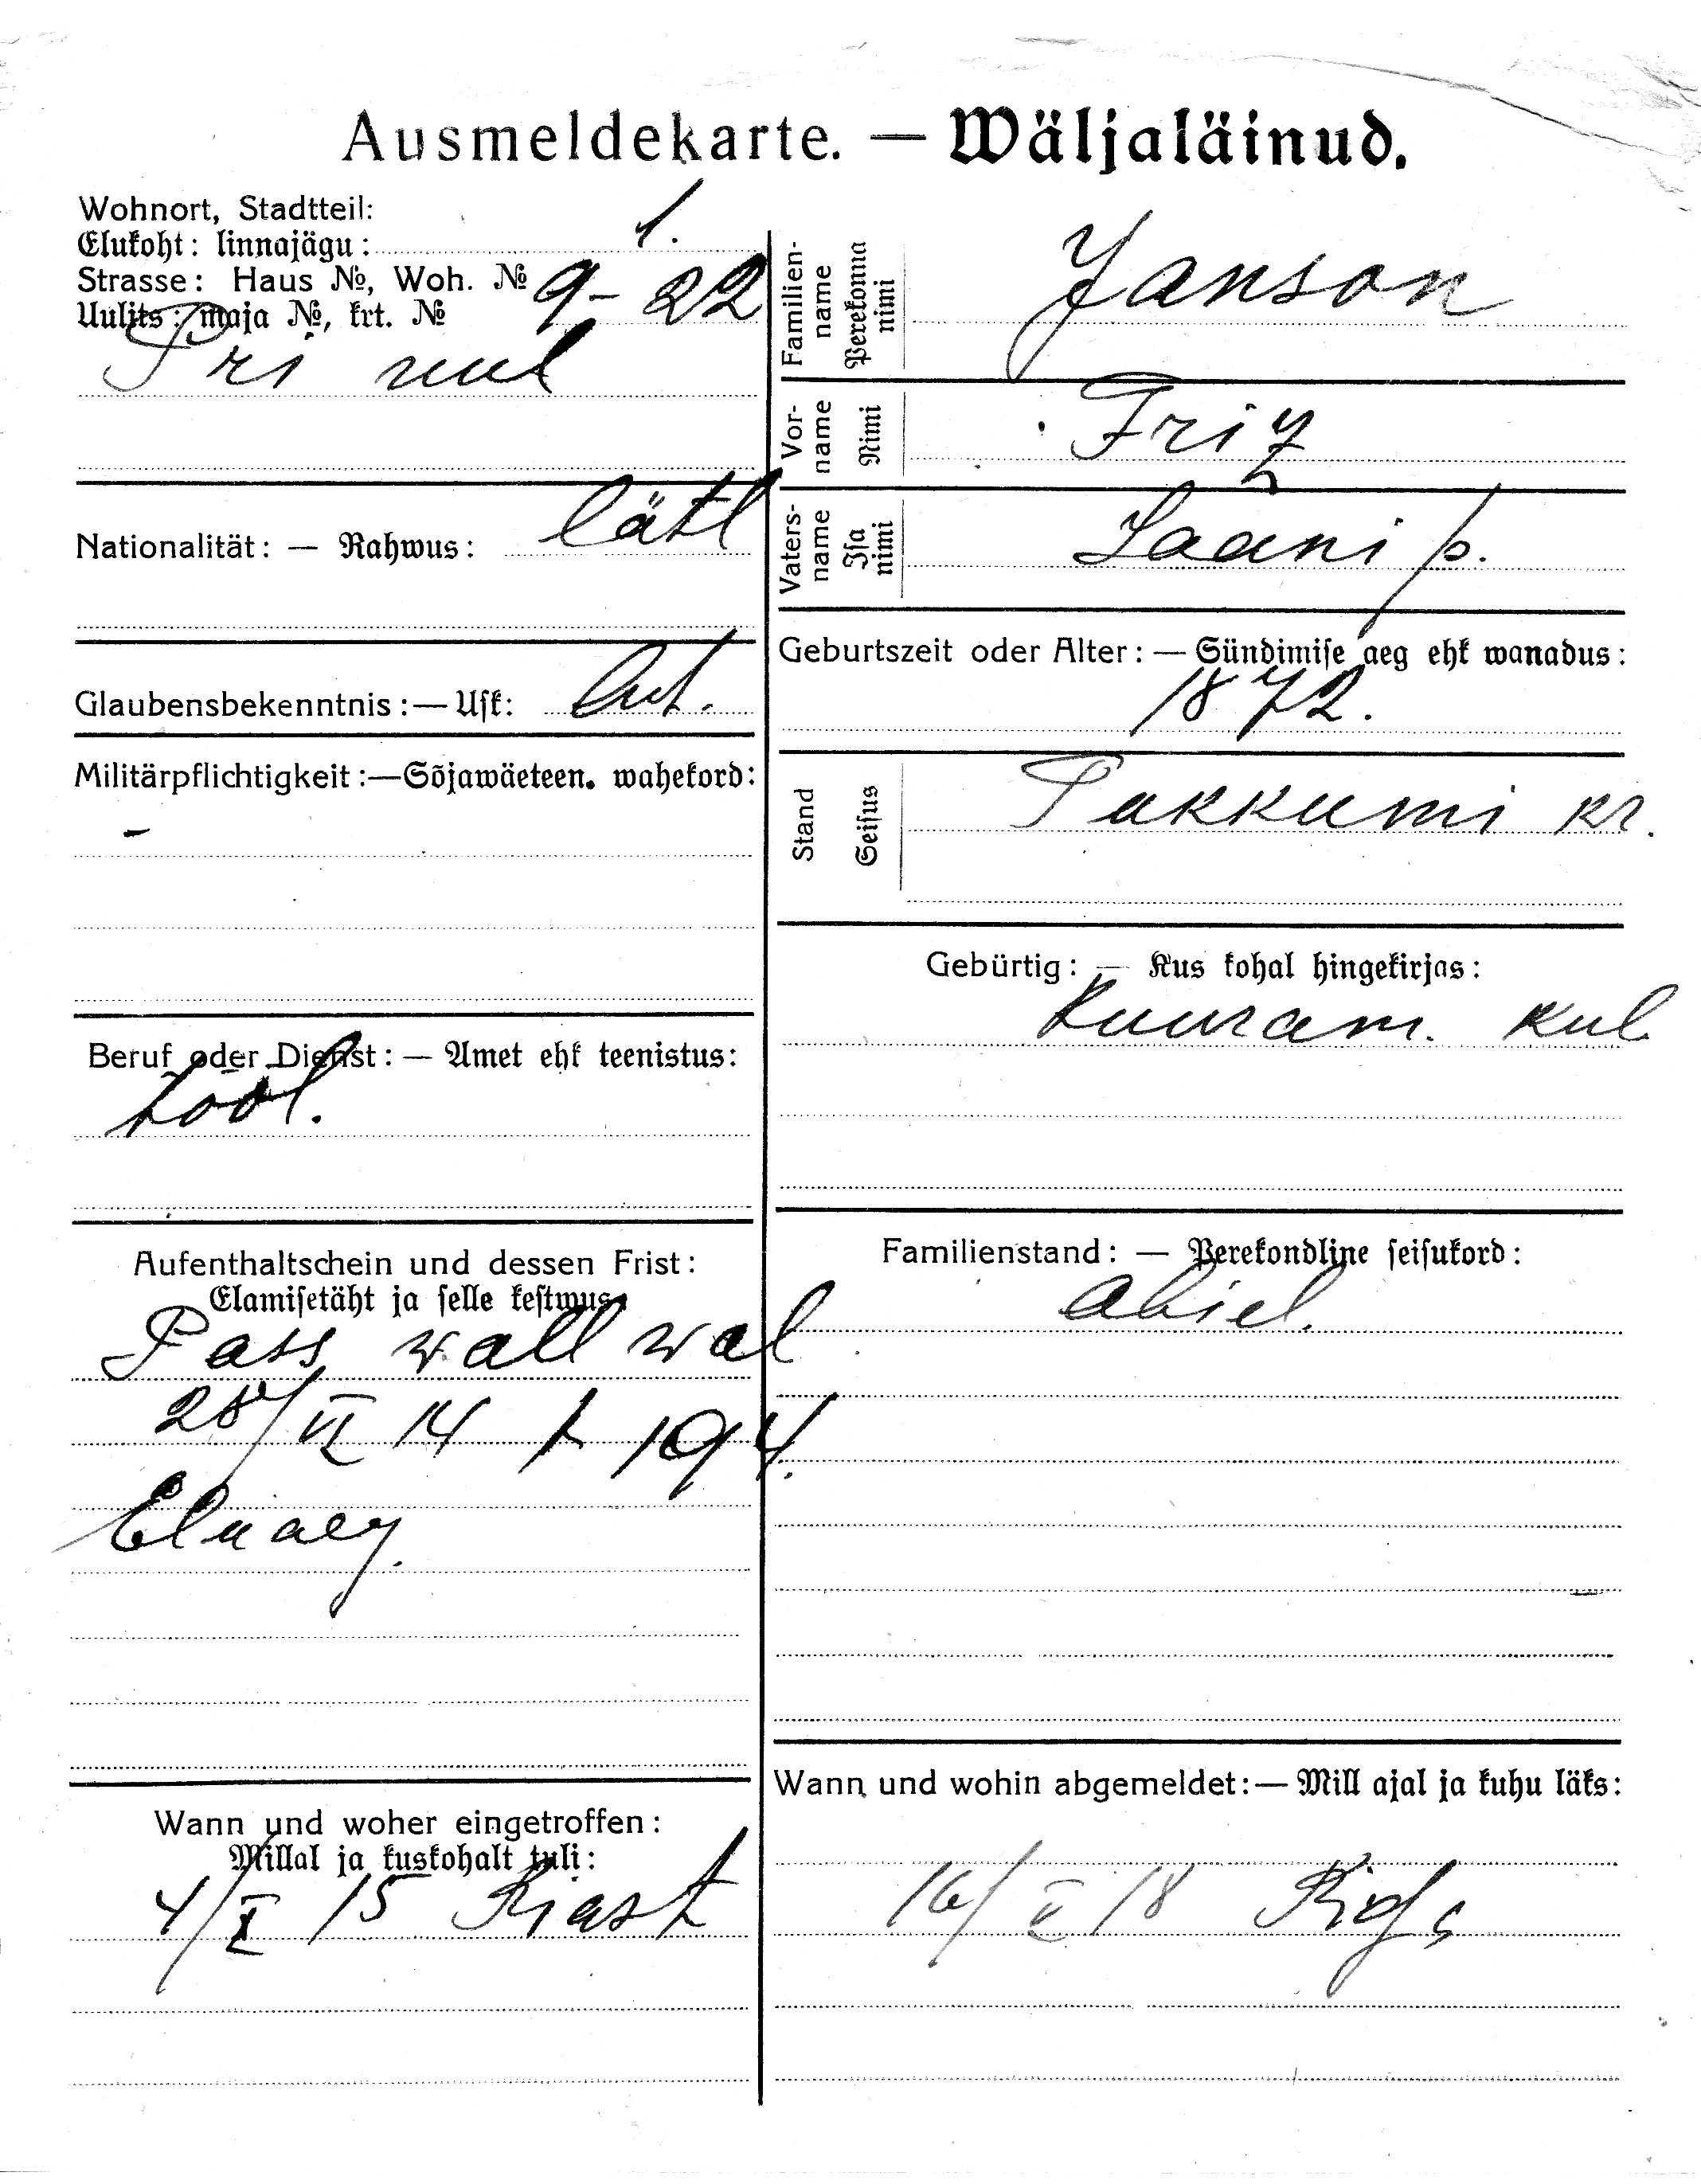 Ausmeldekarte. — Wäljaläinud.
Wohnort, Stadtteil:
Elukoht: linnajägu: 1.
Strasse: Haus №, Woh. № 9 - 22
Uulits: maja №, krt. №
Pri uul
Nationalität: — Rahwus: lätl
Glaubensbekenntnis: — Usk: lut.
Militärpflichtigkeit: — Sõjawäeteen. wahekord:
-
Beruf oder Dienst: — Amet ehk teenistus:
tööl.
Aufenthaltschein und dessen Frist:
Elamisetäht ja selle kestwus:
Pass wall wal
28/VI 14 1 194.
Eluaeg.
Wann und woher eingetroffen:
Millal ja kuskohalt tuli:
4/X 15 Riast
Familien-
name
Perekonna
nimi
Janson
Vor-
name
Nimi
Friz
Vaters-
name
Isa
nimi
Jaani p.
Geburtszeit oder Alter: — Sündimise aeg ehk wanadus:
1872.
Stand
Seisus
Pakkumi kr.
Gebürtig: — Kus kohal hingekirjas:
Kuuram. kub
Familienstand: — Perekondline seisukord:
abiel.
Wann und wohin abgemeldet: — Mill ajal ja kuhu läks:
16/V 18